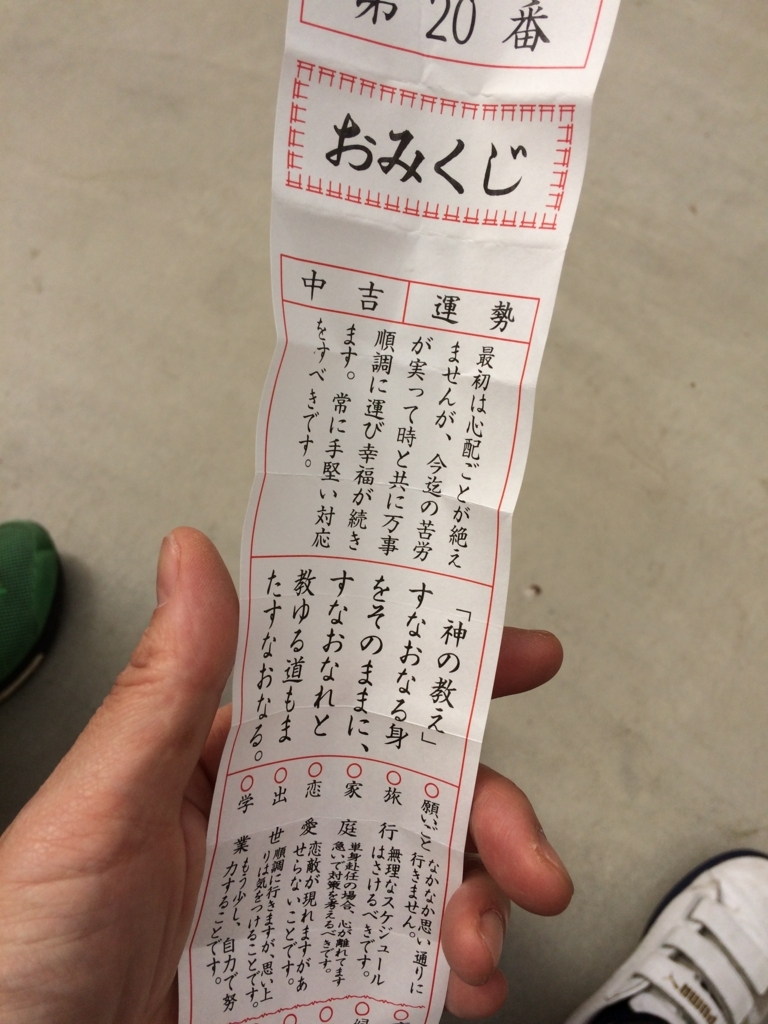 第20番
おみくじ
運勢
中吉
最初は心配ごとが絶え
ませんが、今迄の苦労
が実って時と共に万事
順調に運び幸福が続き
ます。常に手堅い対応
をすべきです。
「神の教え」
すなおなる身
をそのままに、
すなおなれと
教ゆる道もま
たすなおなる。
○願いごと なかなか思い通りに
行きません。
○旅行 無理なスケジュール
はさけるべきです。
○家庭 単身赴任の場合、心が離れてます
急いで対策を考えるべきです。
○恋愛 恋敵が現れますがあ
せらないことです。
○出世 順調に行きますが、思い上
りは気をつけることです。
○学業 もう少し、自力で努
力することです。